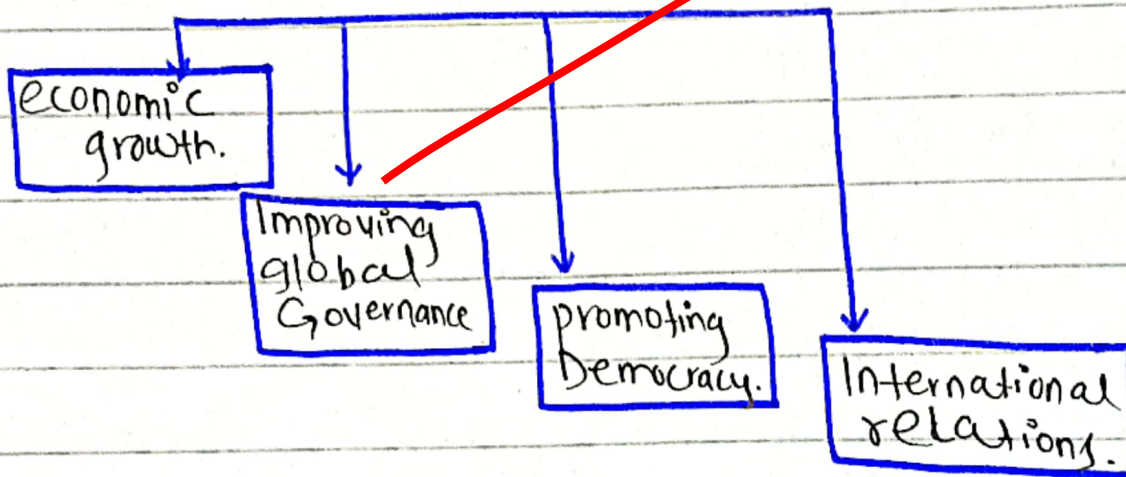 economic
growth.
Improving
global
Governance
promoting
Democracy.
International
relations.